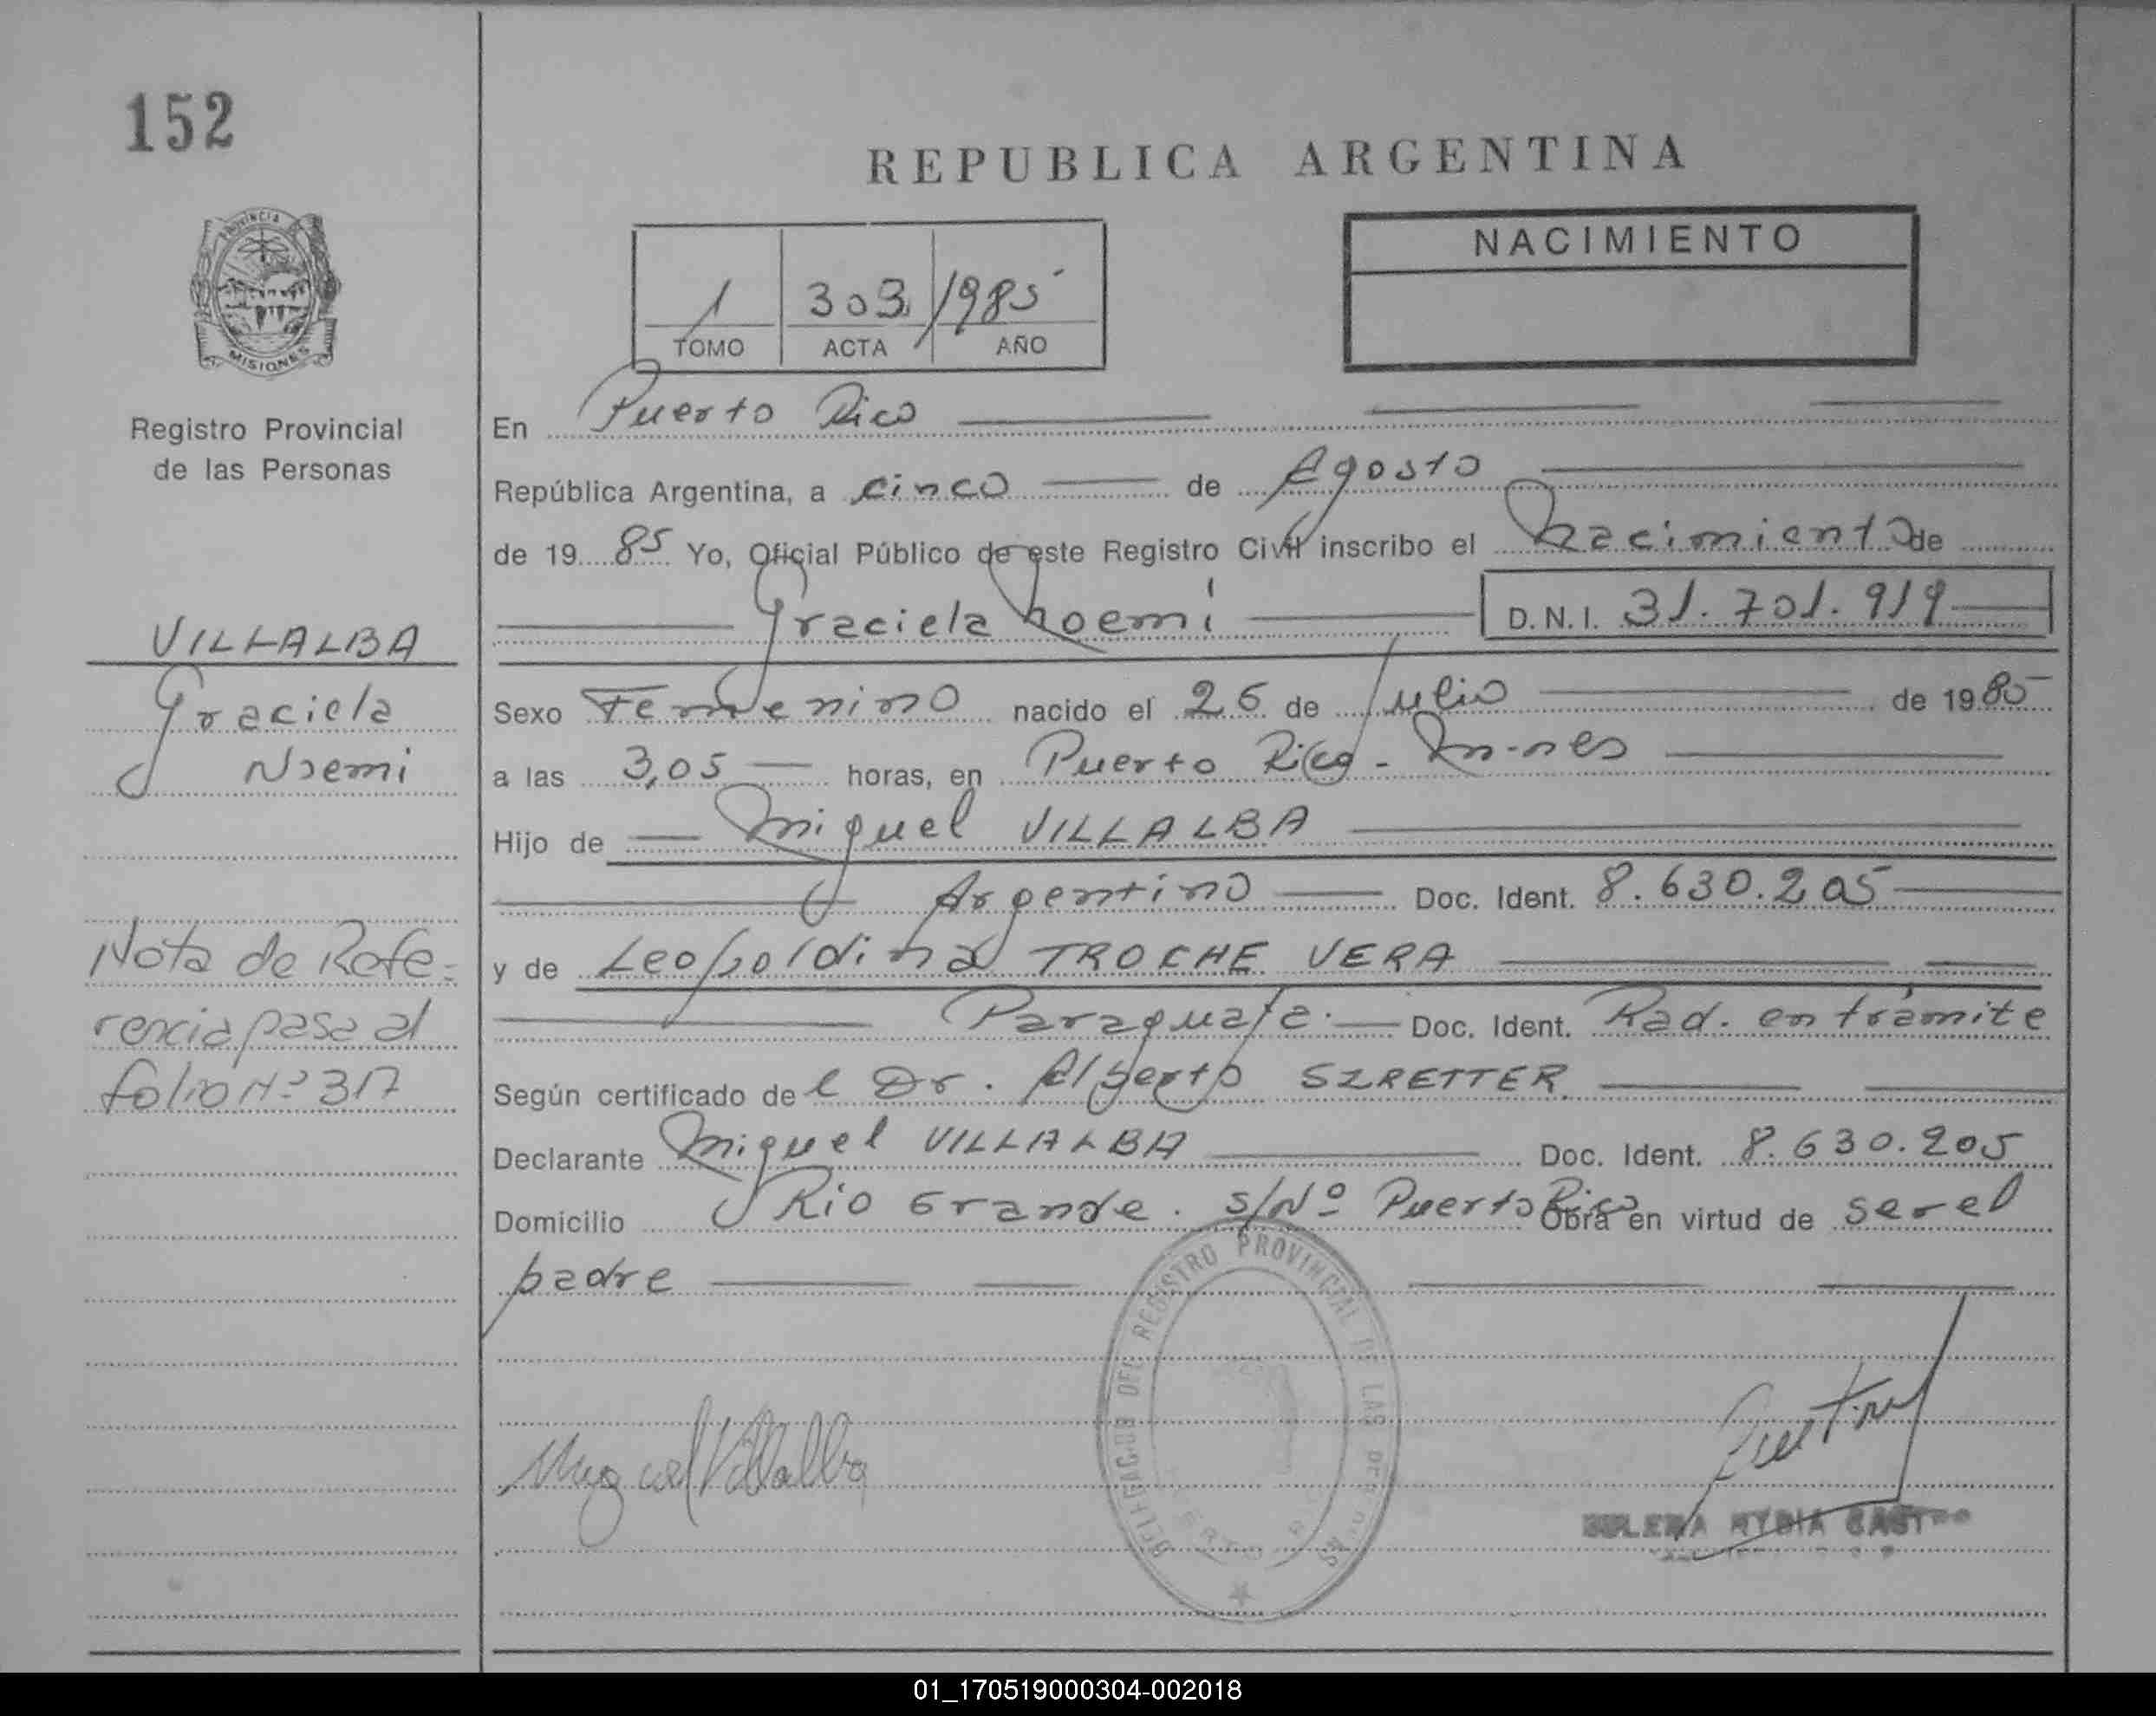 152
PROVINCIA
MISIONES
Registro Provincial
de las Personas
VILLALBA
Graciela
Noemi
Nota de Refe-
rencia pasa al
folio Nº 317
REPUBLICA ARGENTINA
1 303 1985
TOMO ACTA AÑO
NACIMIENTO
En Puerto Rico
República Argentina, a cinco de Agosto
de 19 85 Yo, Oficial Público de este Registro Civil inscribo el Nacimiento de
Graciela Noemí D.N.I. 31.701.919
Sexo Femenino nacido el 26 de Julio de 1985
a las 3,05 horas, en Puerto Rico - Mnes
Hijo de Miguel VILLALBA
Argentino Doc. Ident. 8.630.205
y de Leopoldina TROCHE VERA
Paraguaya. Doc. Ident. Rad. en trámite
Según certificado del Dr. Alberto SZRETTER
Declarante Miguel VILLALBA Doc. Ident. 8.630.205
Domicilio Rio Grande. S/Nº Puerto Rico Obra en virtud de ser el
padre
DEL REGISTRO PROVINCIAL DE LAS
Miguel Villalba
CASTRO
01_170519000304-002018